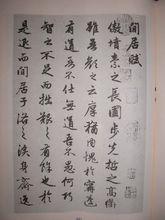 閒居賦
傲墳素之長圃步先哲之高衢
雖吾顏之云厚猶内愧於甯蘧
有道吾不仕無道吾不愚何巧
智之不足而拙艱之有餘也於
是退而閒居于洛之涘身齊逸